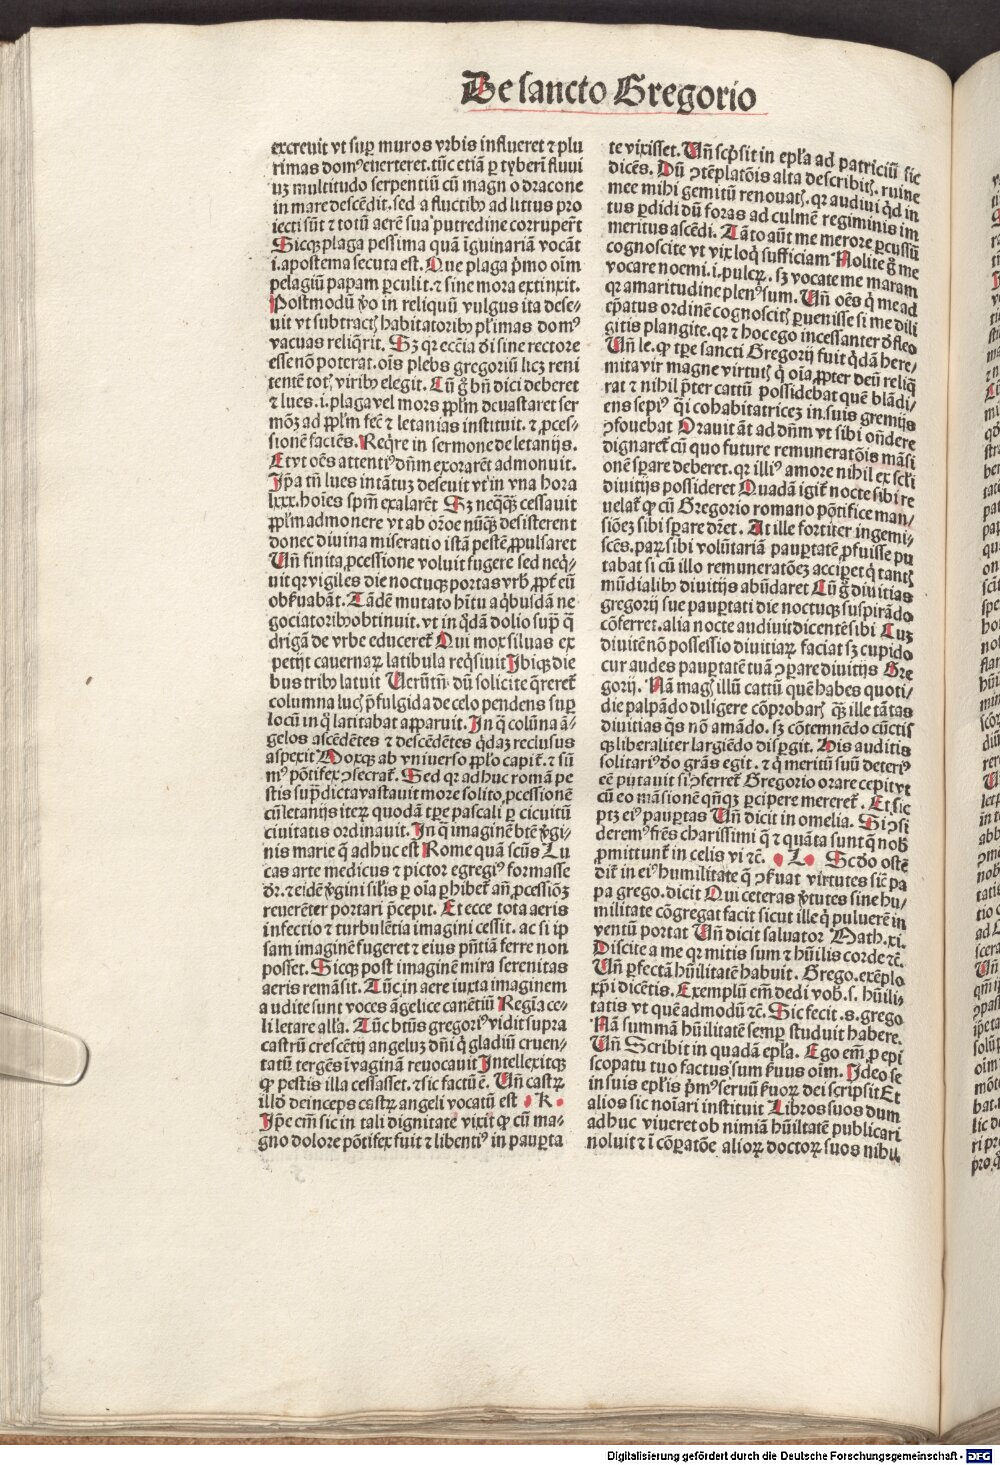 De sancto Gregorio
excreuit vt sup̱ muros vrbis influeret ⁊ plu
rimas domꝰ euerteret. tūc etiā ꝑ tyberī fluui
uꝫ multitudo serpentiū cū magno dracone
in mare descēdit. sed a fluctibꝰ ad littus pro
iecti sūt ⁊ totū aerē sua putredine corruꝑert
Sicqꝫ plaga pessima quā īguinariā vocāt
.i. apostema secuta est. Que plaga p̄mo oīm
pelagiū papam ꝑculit. ⁊ sine mora extinxit.
Postmodū ꝟo in reliquū vulgus ita dese-
uit vt subtractꝭ habitatoribꝰ pl̄imas domꝰ
vacuas reliq̄rit. Sꝫ qꝛ ecc̄ia dī sine rectore
esse nō poterat. oīs plebs gregoriū licꝫ reni
tentē totꝭ viribꝰ elegit. Cū g̊ bn̄dici deberet
⁊ lues .i. plaga vel mors ppl̄m deuastaret ser
mōꝫ ad ppl̄m fec̄ ⁊ letanias instituit. ⁊ ꝓces-
sionē faciēs. Req̄re in sermone de letanijs.
Et vt oēs attentiꝰ dn̄m exorarēt admonuit.
Ip̄a tn̄ lues intātuꝫ deseuit vt in vna hora
lxxx. hoīes sp̄m exalarēt Sꝫ neq̄q̄ꝫ cessauit
ppl̄m admonere vt ab or̄oe nūq̄ꝫ desisterent
donec diuina miseratio istā pestē ꝓpulsaret
Un̄ finita ꝓcessione voluit fugere sed neq̄-
uit qꝛ vigiles die noctuqꝫ portas vrbꝭ ꝓpt̄ eū
obẜuabāt. Tādē mutato hītu a q̇busdā ne
gociatoribꝰ obtinuit. vt in q̇dā dolio suꝑ q̄
drigā de vrbe educeret̄ Qui mox siluas ex
petijt cauernaꝝ latibula req̄siuit Ibiqꝫ die
bus tribꝰ latuit Uerūtn̄ dū solicite q̄reret̄
columna lucꝭ p̄fulgida de celo pendens suꝑ
locū in q̇ latitabat apparuit. In q̄ colūna ā-
gelos ascēdētes ⁊ descēdētes q̇daꝫ reclusus
aspexit Moxqꝫ ab vniuerso ppl̄o capit̄. ⁊ sū
mꝰ pōtifex ꝯsecrat̄. Sed qꝛ adhuc romā pe
stis sup̄dicta vastauit more solito ꝓcessionē
cū letanijs iteꝝ quodā tp̄re pascali ꝑ cicuitū
ciuitatis ordinauit. In q̄ imaginē btē ꝟgi-
nis marie q̄ adhuc est Rome quā scūs Lu
cas arte medicus ⁊ pictor egregiꝰ formasse
dr̄. ⁊ eidē ꝟgini sil̄is ꝑ oīa ꝑhibet̄ an̄ ꝓcessiōꝫ
reuerēter portari p̄cepit. Et ecce tota aeris
infectio ⁊ turbulētia imagini cessit. ac si ip
sam imaginē fugeret ⁊ eius pn̄tiā ferre non
posset. Sicqꝫ post imaginē mira serenitas
aeris remāsit. Tūc in aere iuxta imaginem
audite sunt voces āgelice canētiū Regīa ce-
li letare all̄a. Tūc btūs gregoriꝰ vidit supra
castrū crescētij angeluꝫ dn̄i q̇ gladiū cruen-
tatū tergēs ī vaginā reuocauit Intellexitqꝫ
ꝙ pestis illa cessasset. ⁊ sic factū ē. Un̄ castꝝ
illḋ deinceps castꝝ angeli vocatū est · K ·
Ip̄e em̄ sic in tali dignitate vixit ꝙ cū ma-
gno dolore pōtifex fuit ⁊ libentiꝰ in pauꝑta
te vixisset. Un̄ scp̄sit in epl̄a ad patriciū sic
dicēs. Dū ꝯtēplatōis alta describitꝭ. ruine
mee mihi gemitū renouatꝭ. qꝛ audiui q̇d in
tus ꝑdidi dū foras ad culmē regiminis im
meritus ascēdi. Tāto aūt me merore ꝑcussū
cognoscite vt vix loq̇ sufficiam Nolite g̊ me
vocare noemi .i. pulcꝝ. sꝫ vocate me maram
qꝛ amaritudine plenꝰ sum. Un̄ oēs q̇ me ad
ep̄atus ordinē cognoscitꝭ ꝑuenisse si me dili
gitis plangite. qꝛ ⁊ hoc ego incessanter d̄fleo
Un̄ le. ꝙ tp̄re sancti Gregorij fuit q̇dā here-
mita vir magne virtutꝭ q̇ oīa ꝓpter deū reliq̄
rat ⁊ nihil p̄ter cattū possidebat quē blādi-
ens sepiꝰ q̄i cohabitatricē in suis gremijs
ꝯfouebat Orauit āt ad dn̄m vt sibi on̄dere
dignaret̄ cū quo future remuneratōis māsi
onē sꝑare deberet. qꝛ illiꝰ amore nihil ex sc̄li
diuitijs possideret Quadā igit̄ nocte sibi re
uelat̄ ꝙ cū Gregorio romano pōtifice man-
siōeꝫ sibi sꝑare dr̄et. At ille fortiter ingemi-
scēs. paꝝ sibi volūtariā pauꝑtatē ꝓfuisse pu
tabat si cū illo remuneratōeꝫ acciꝑet q̇ tantꝭ
mūdialibꝰ diuitijs abūdaret Cū g̊ diuitias
gregorij sue pauꝑtati die noctuqꝫ suspirādo
cōferret. alia nocte audiuit dicentē sibi Cuꝫ
diuitē nō possessio diuitiaꝝ faciat sꝫ cupido
cur audes pauꝑtatē tuā ꝯparare diuitijs Gre
gorij. Nā magꝭ illū cattū quē habes quoti-
die palpādo diligere cōprobarꝭ qꝫ ille tātas
diuitias q̄s nō amādo. sꝫ cōtemnēdo cūctis
qꝫ liberaliter largiēdo disꝑgit. His auditis
solitariꝰ do grās egit. ⁊ q̇ meritū suū deteriꝰ
eē putauit si ꝯferret̄ Gregorio orare cepit vt
cū eo māsionē qn̄qꝫ ꝑcipere mereret̄. Et sic
ptꝫ eiꝰ pauꝑtas Un̄ dicit in omelia. Si ꝯsi
deremꝰ fr̄es charissimi q̄ ⁊ quāta sunt q̄ nobꝭ
ꝓmittunt̄ in celis vi ⁊c̄. · L · Scḋo ostē
dit̄ in eiꝰ humilitate q̄ ꝯẜuat virtutes sic̄ pa
pa grego. dicit Qui ceteras ꝟtutes sine hu-
militate cōgregat facit sicut ille q̇ puluerē in
ventū portat Un̄ dicit saluator Math. xi.
Discite a me qꝛ mitis sum ⁊ hūilis corde ⁊c̄.
Un̄ ꝑfectā hūilitatē habuit. Grego. exēplo
xp̄i dicētis. Exemplū em̄ dedi vobꝭ .s. hūili-
tatis vt quēadmodū ⁊c̄. Sic fecit .s. grego
Nā summā hūilitatē semꝑ studuit habere.
Un̄ Scribit in quadā epl̄a. Ego em̄ ꝓ epi
scopatu tuo factus sum ẜuus oīm. Ideo se
in suis epl̄is p̄mꝰ seruū ẜuoꝝ dei scripsit Et
alios sic noīari instituit Libros suos dum
adhuc viueret ob nimiā hūiltatē publicari
noluit ⁊ ī cōꝑatōe alioꝝ doctoꝝ suos nihil
Digitalisierung gefördert durch die Deutsche Forschungsgemeinschaft - DFG